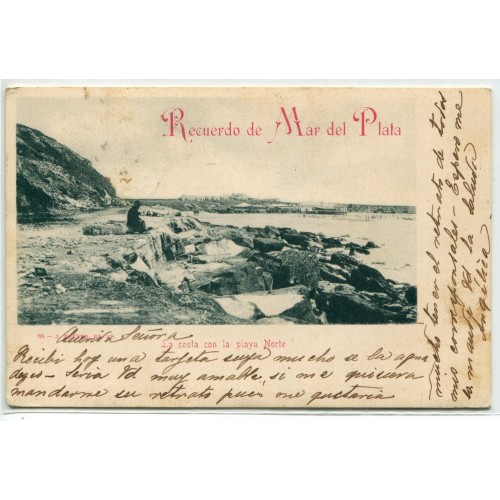 Recuerdo de Mar del Plata
La costa con la playa Norte
Señora
Recibi hoy una tarjeta suya mucho se la agra
desco - Seria Vd muy amable, si me quisiera
mandarme su retrato pues me gustaria
mucho tener el retrato de todos
mis corresponsales - Espero me
la mande. La saluda